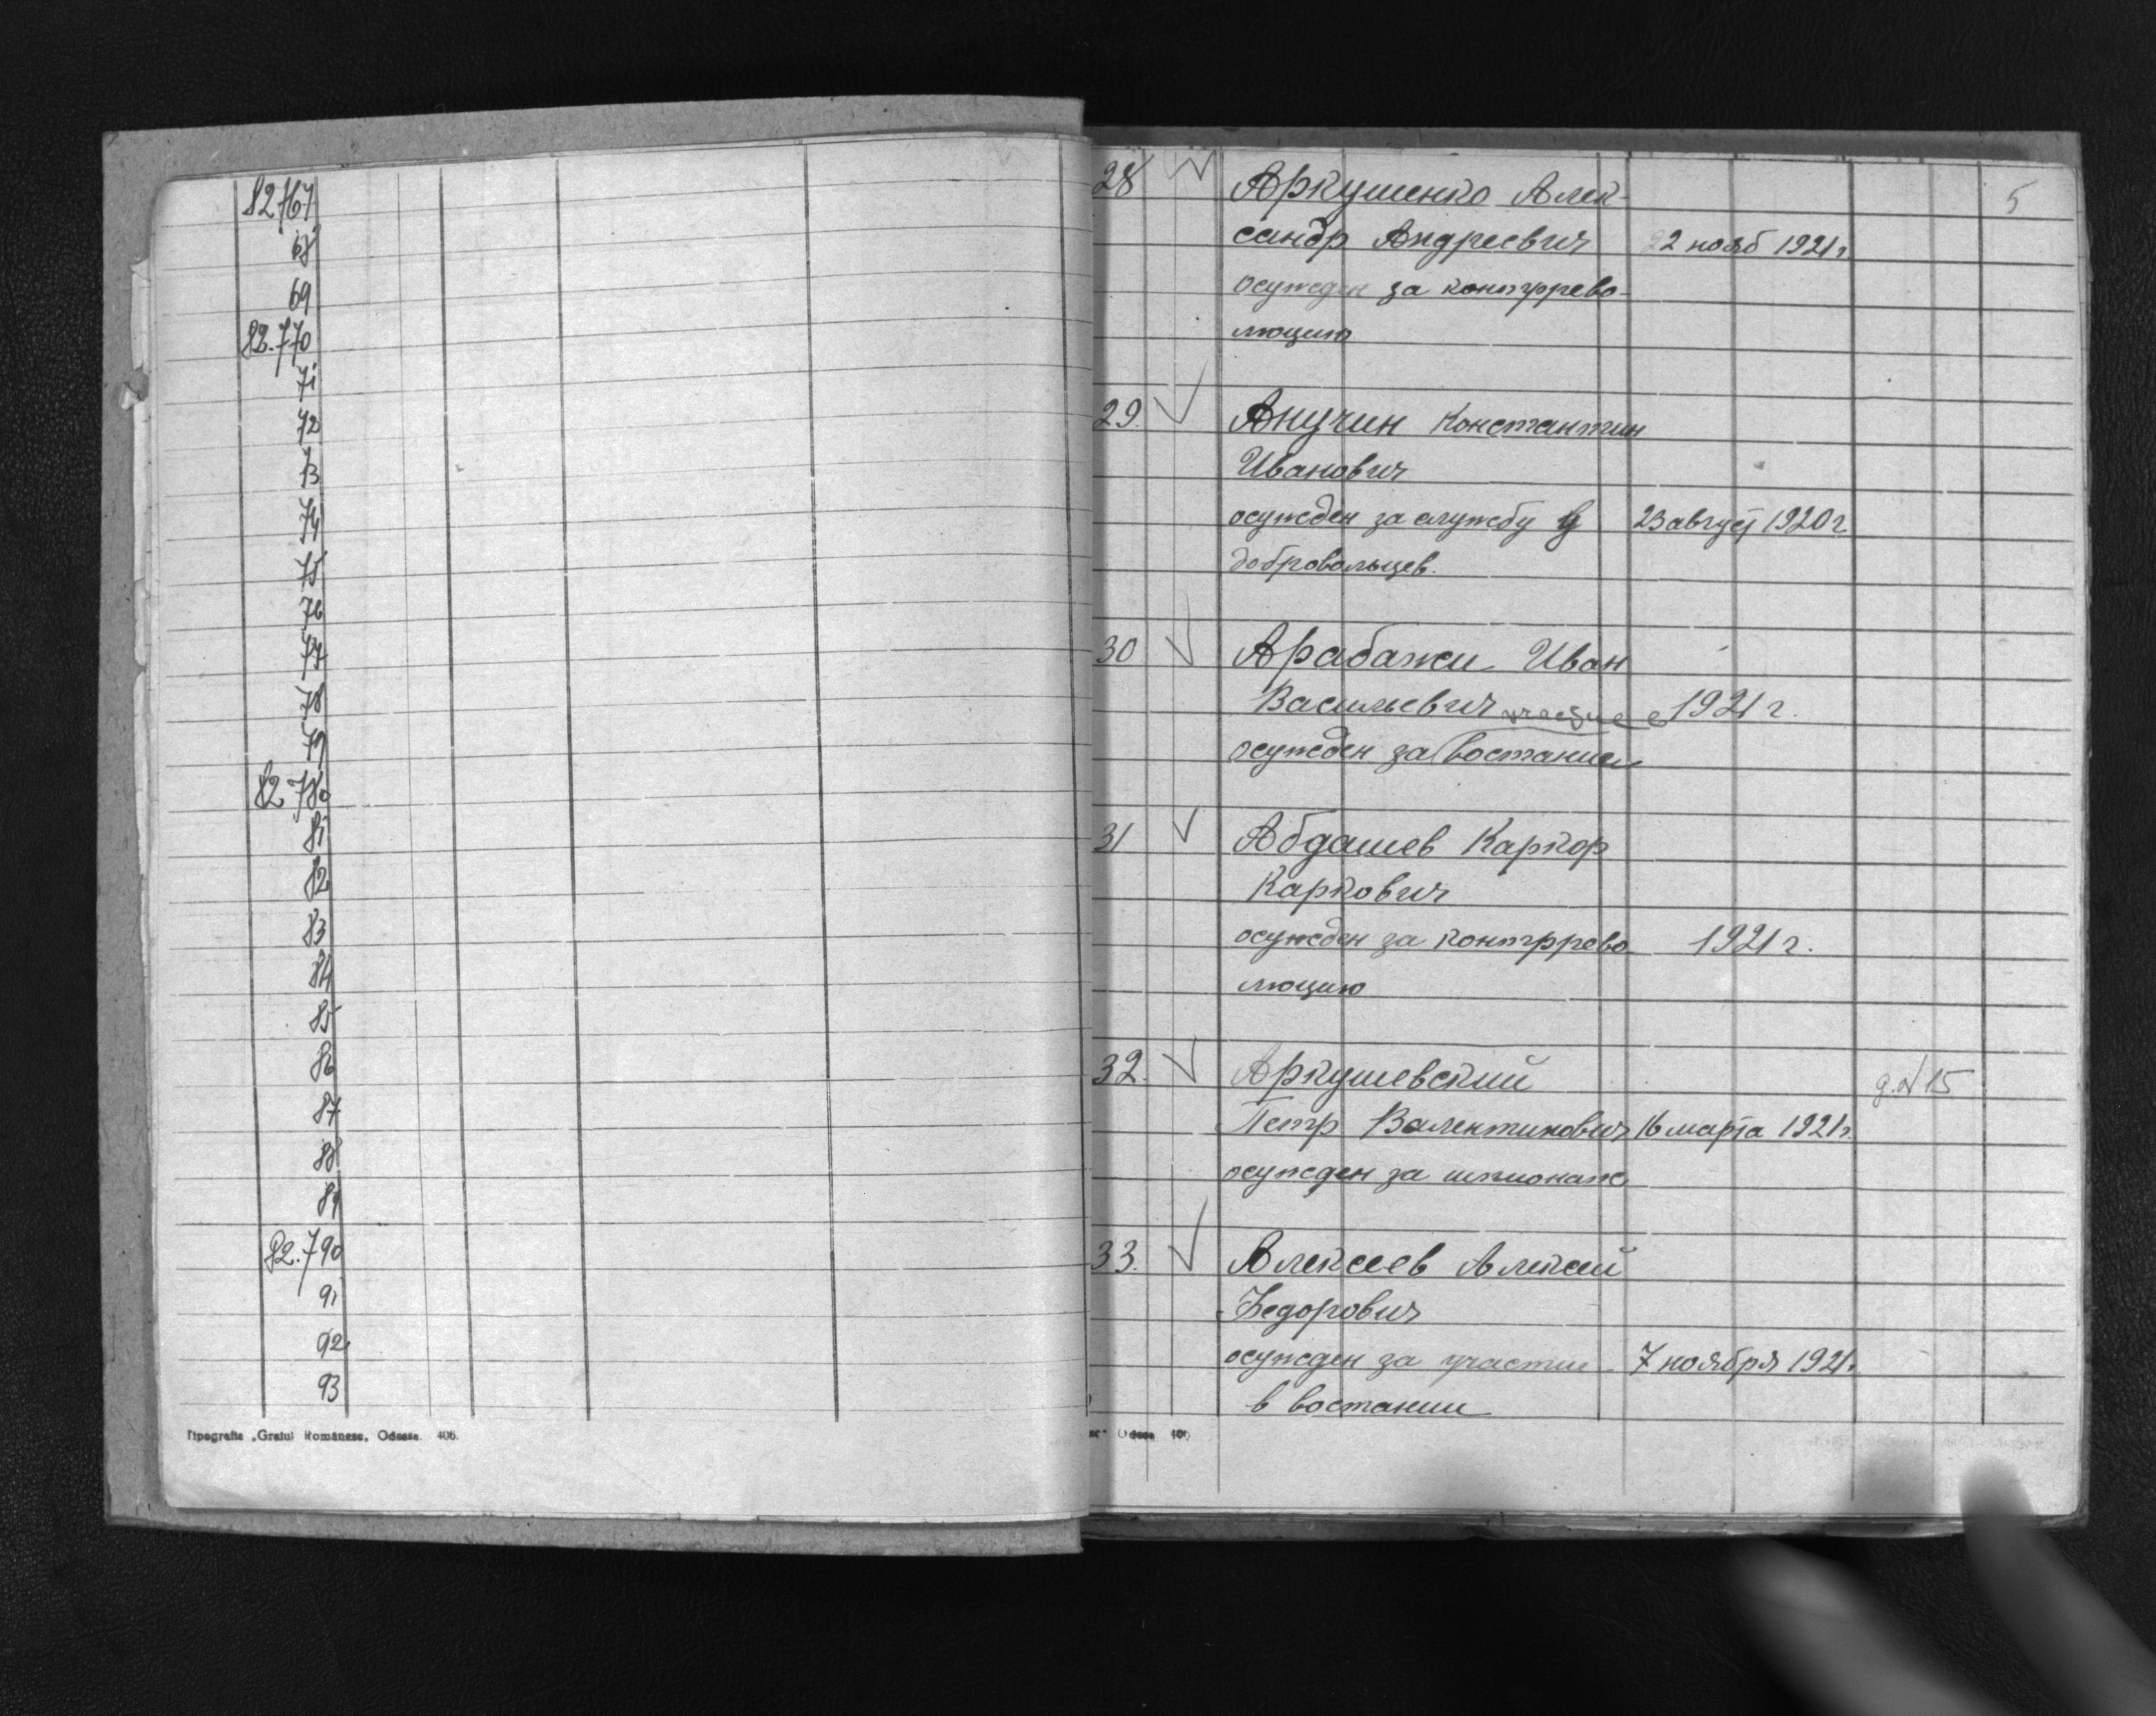 82767
68
69
82.770
71
72
73
74
75
76
77
78
79
82780
81
82
83
84
85
86
87
88
89
82.790
91
92
93
Tipografia „Graiul Românesc„ Odessa. 406.
5
28 Аркушенко Алек-
сандр Андреевич 22 нояб 1921 г.
осужден за контррево-
люцию
29. Анучин Константин
Иванович
осужден за службу у 23 август 1920 г
добровольцев.
30 Арабажи Иван
Васильевич участие в 1921 г.
осужден за востании
31 Абдашев Каркор
Каркович
осужден за контррево- 1921 г.
люцию
32. Аркушевский
15
Петр Валентинович 16 марта 1921 г.
осужден за шпионаж
33. Алексеев Алексей
Федорович
осужден за участие 7 ноября 1921.
в востании
Odessa 406